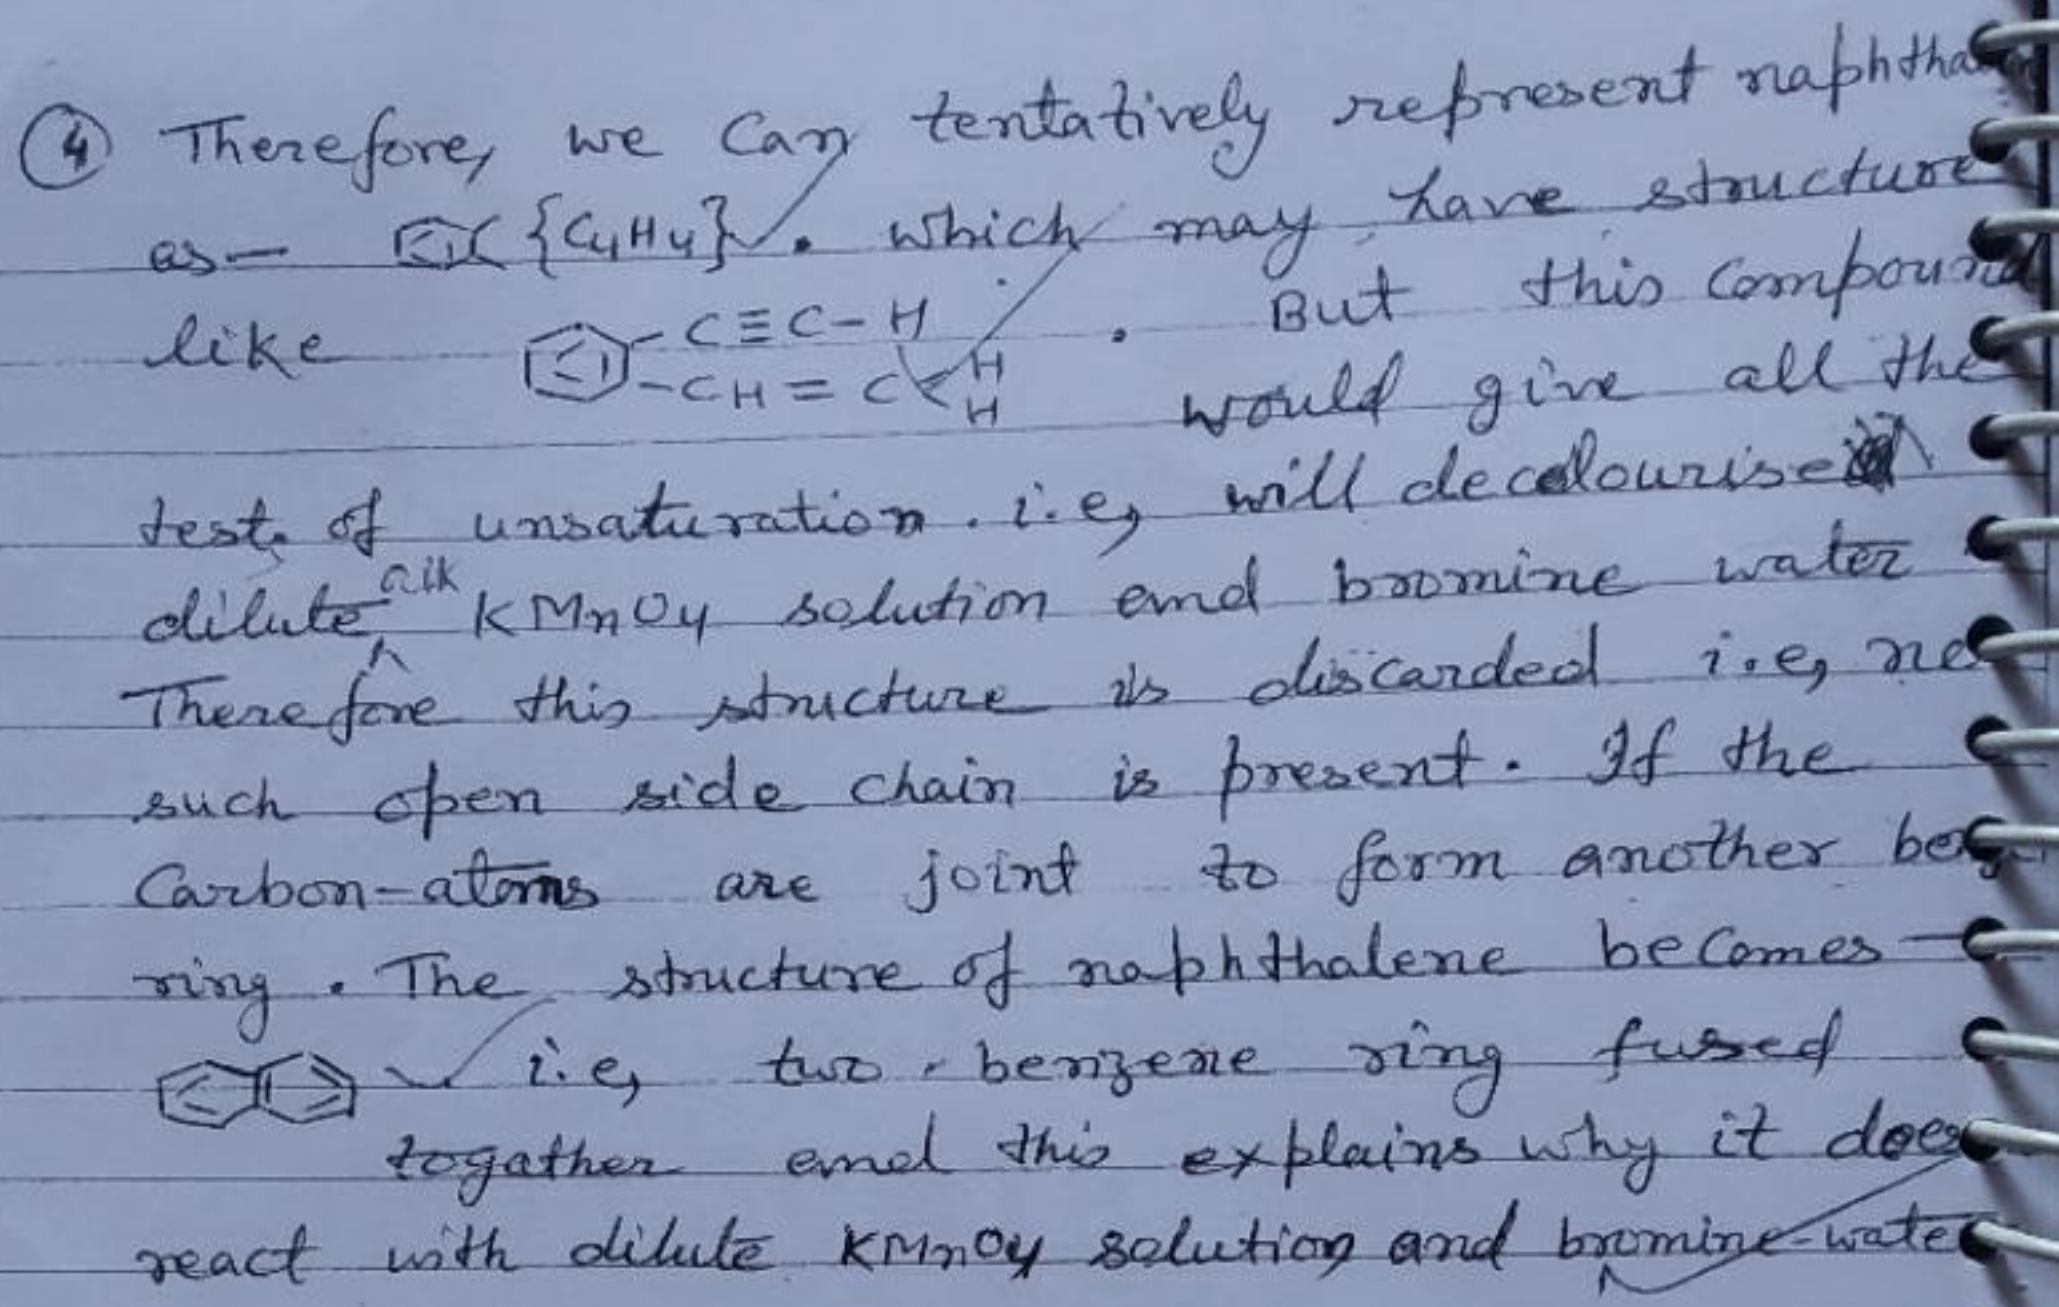 ④ Therefore, we can tentatively represent naphtha
as — {C4H4}. which may have structure
like C≡C-H . But this compound
-CH=C<H H would give all the
tests of unsaturation. i.e, will decolourise
dilute alk KMnO4 solution and bromine water
Therefore this structure is discarded i.e, no
such open side chain is present. If the
Carbon-atoms are joint to form another
ring. The structure of naphthalene becomes —
i.e, two benzene ring fused
togather and this explains why it does
react with dilute KMnO4 solution and bromine-water